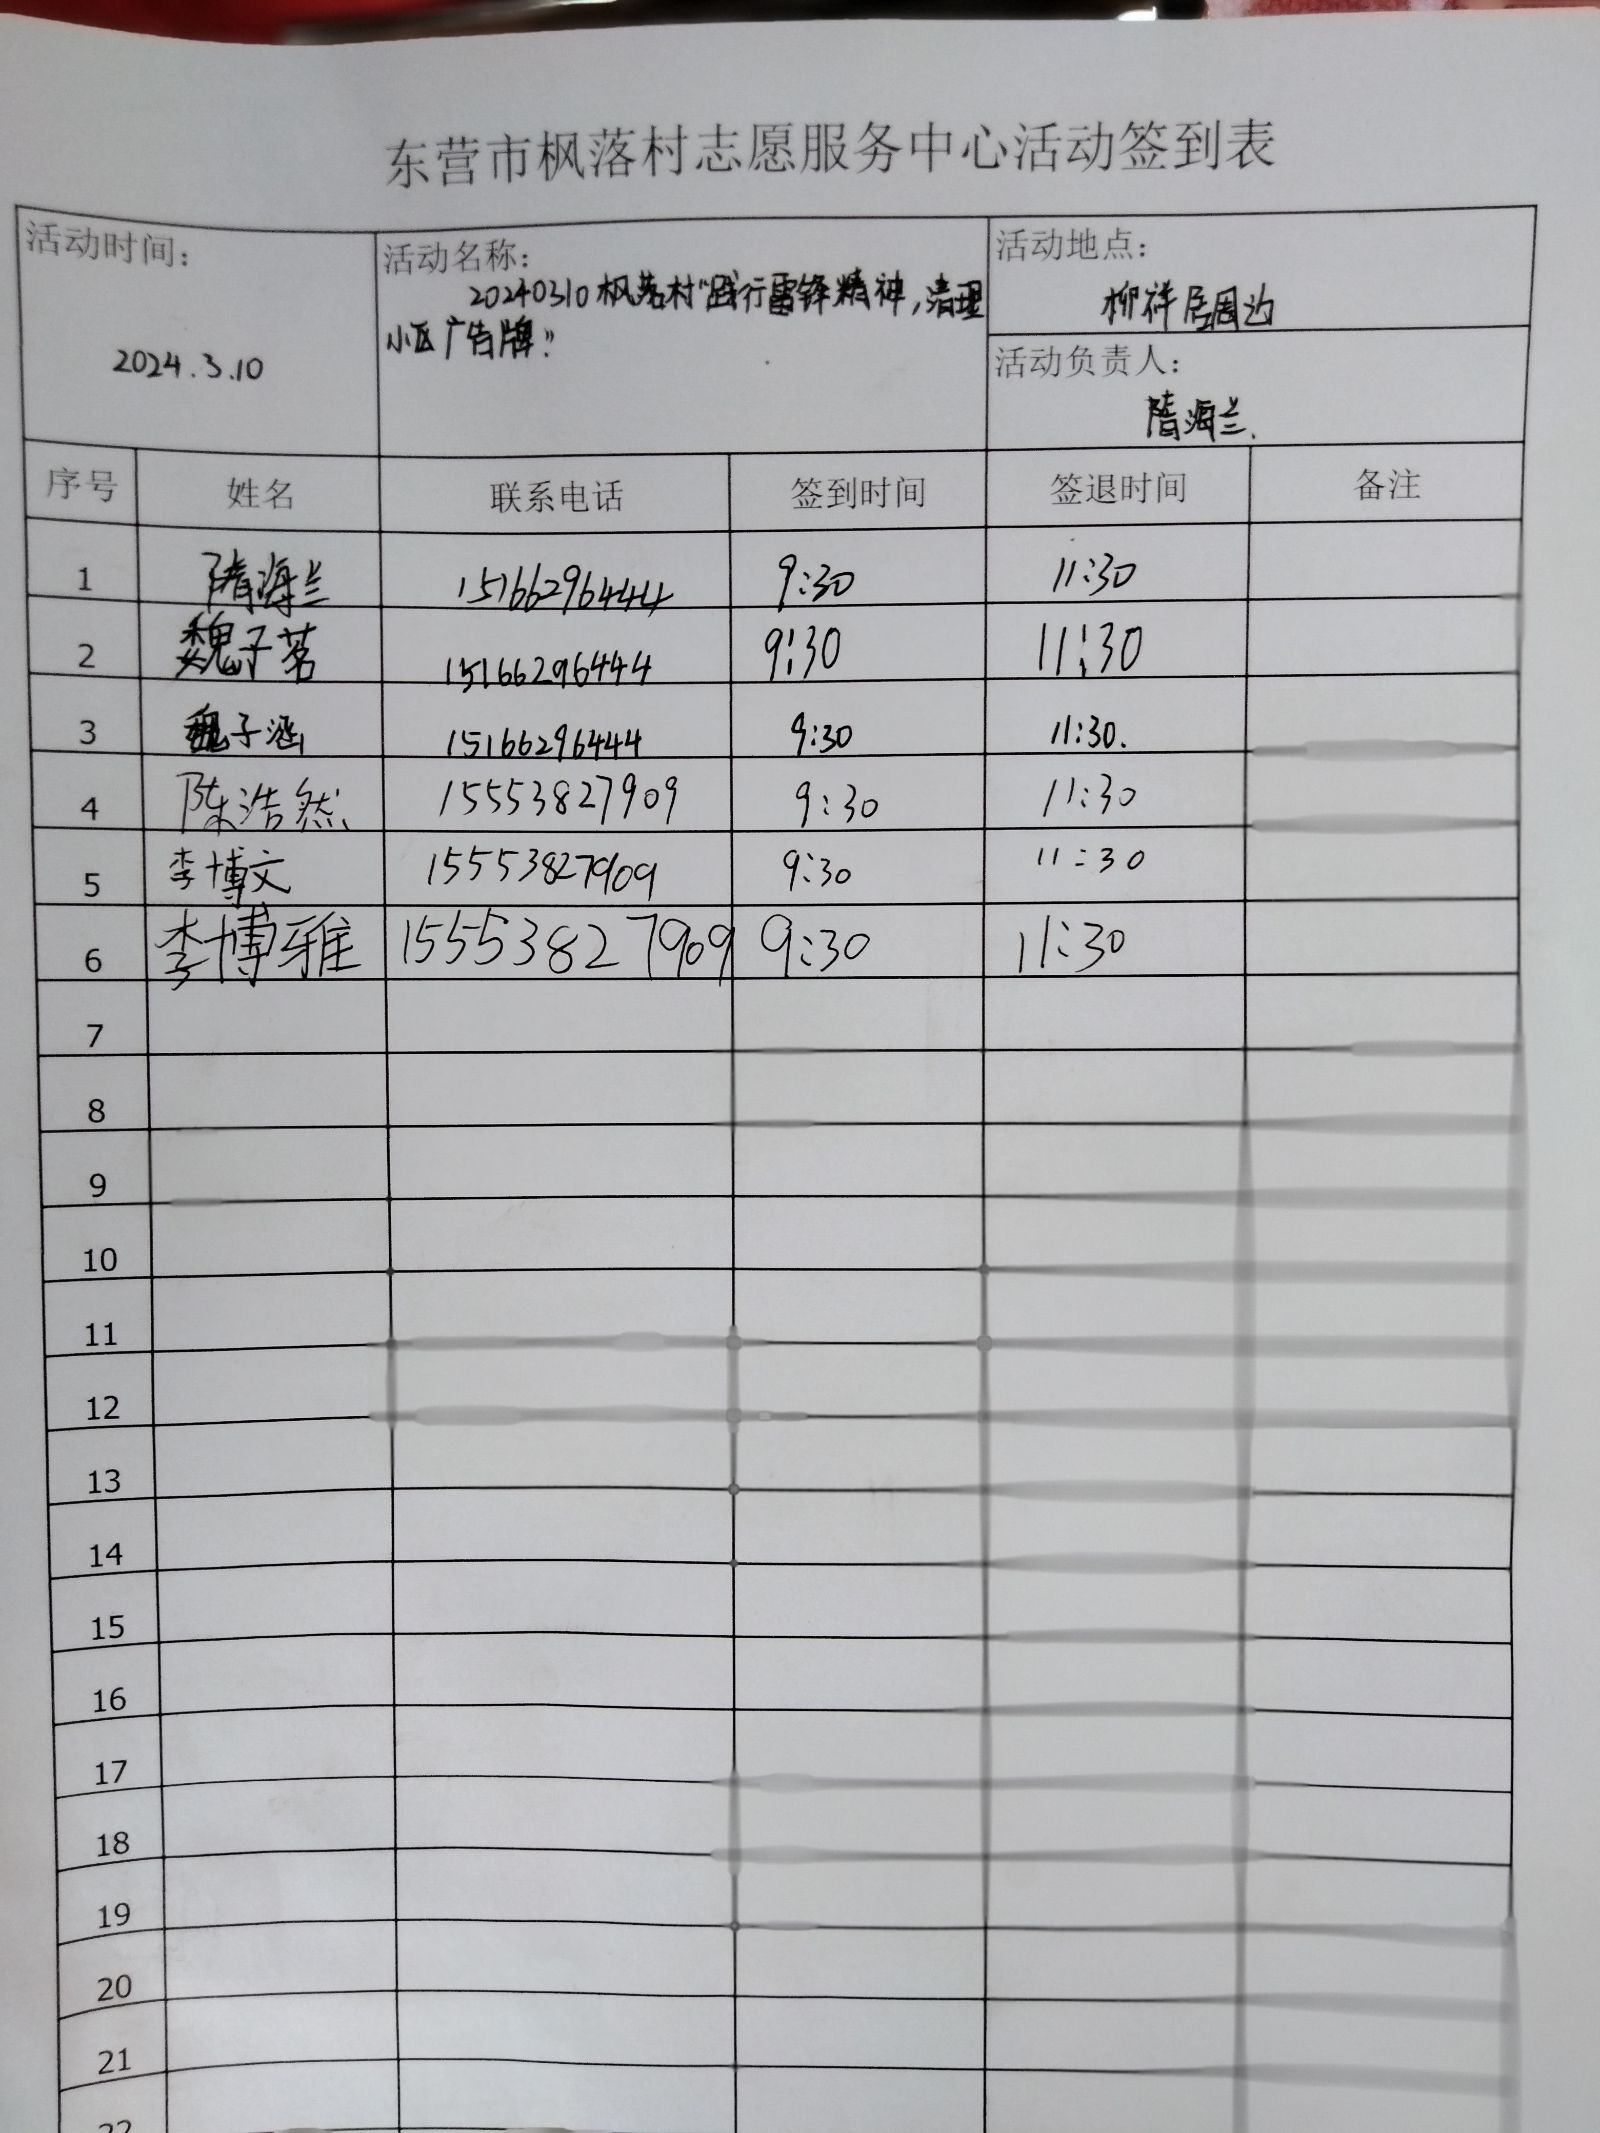 东营市枫落村志愿服务中心活动签到表
活动时间：
2024.3.10
活动名称：
20240310枫落村“践行雷锋精神，清理
小区广告牌”
活动地点：
柳祥居周边
活动负责人：
隋海兰
序号 姓名 联系电话 签到时间 签退时间 备注
1 隋海兰 15166296444 9:30 11:30
2 魏子茗 15166296444 9:30 11:30
3 魏子涵 15166296444 9:30 11:30.
4 陈浩然 15553827909 9:30 11:30
5 李博文 15553827909 9:30 11:30
6 李博雅 15553827909 9:30 11:30
7
8
9
10
11
12
13
14
15
16
17
18
19
20
21
22